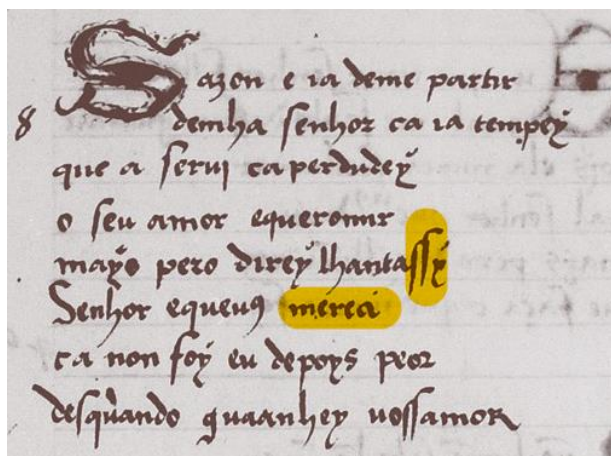 Sazon e ia deme partir
8 demha senhor ca ia tempey
que a servi ca perdudey
o seu amor equeromir
mays pero direy lhantassy
Senhor equeuꝯ mereci
ca non foy eu depoys peor
desquando guaanhey uossamor